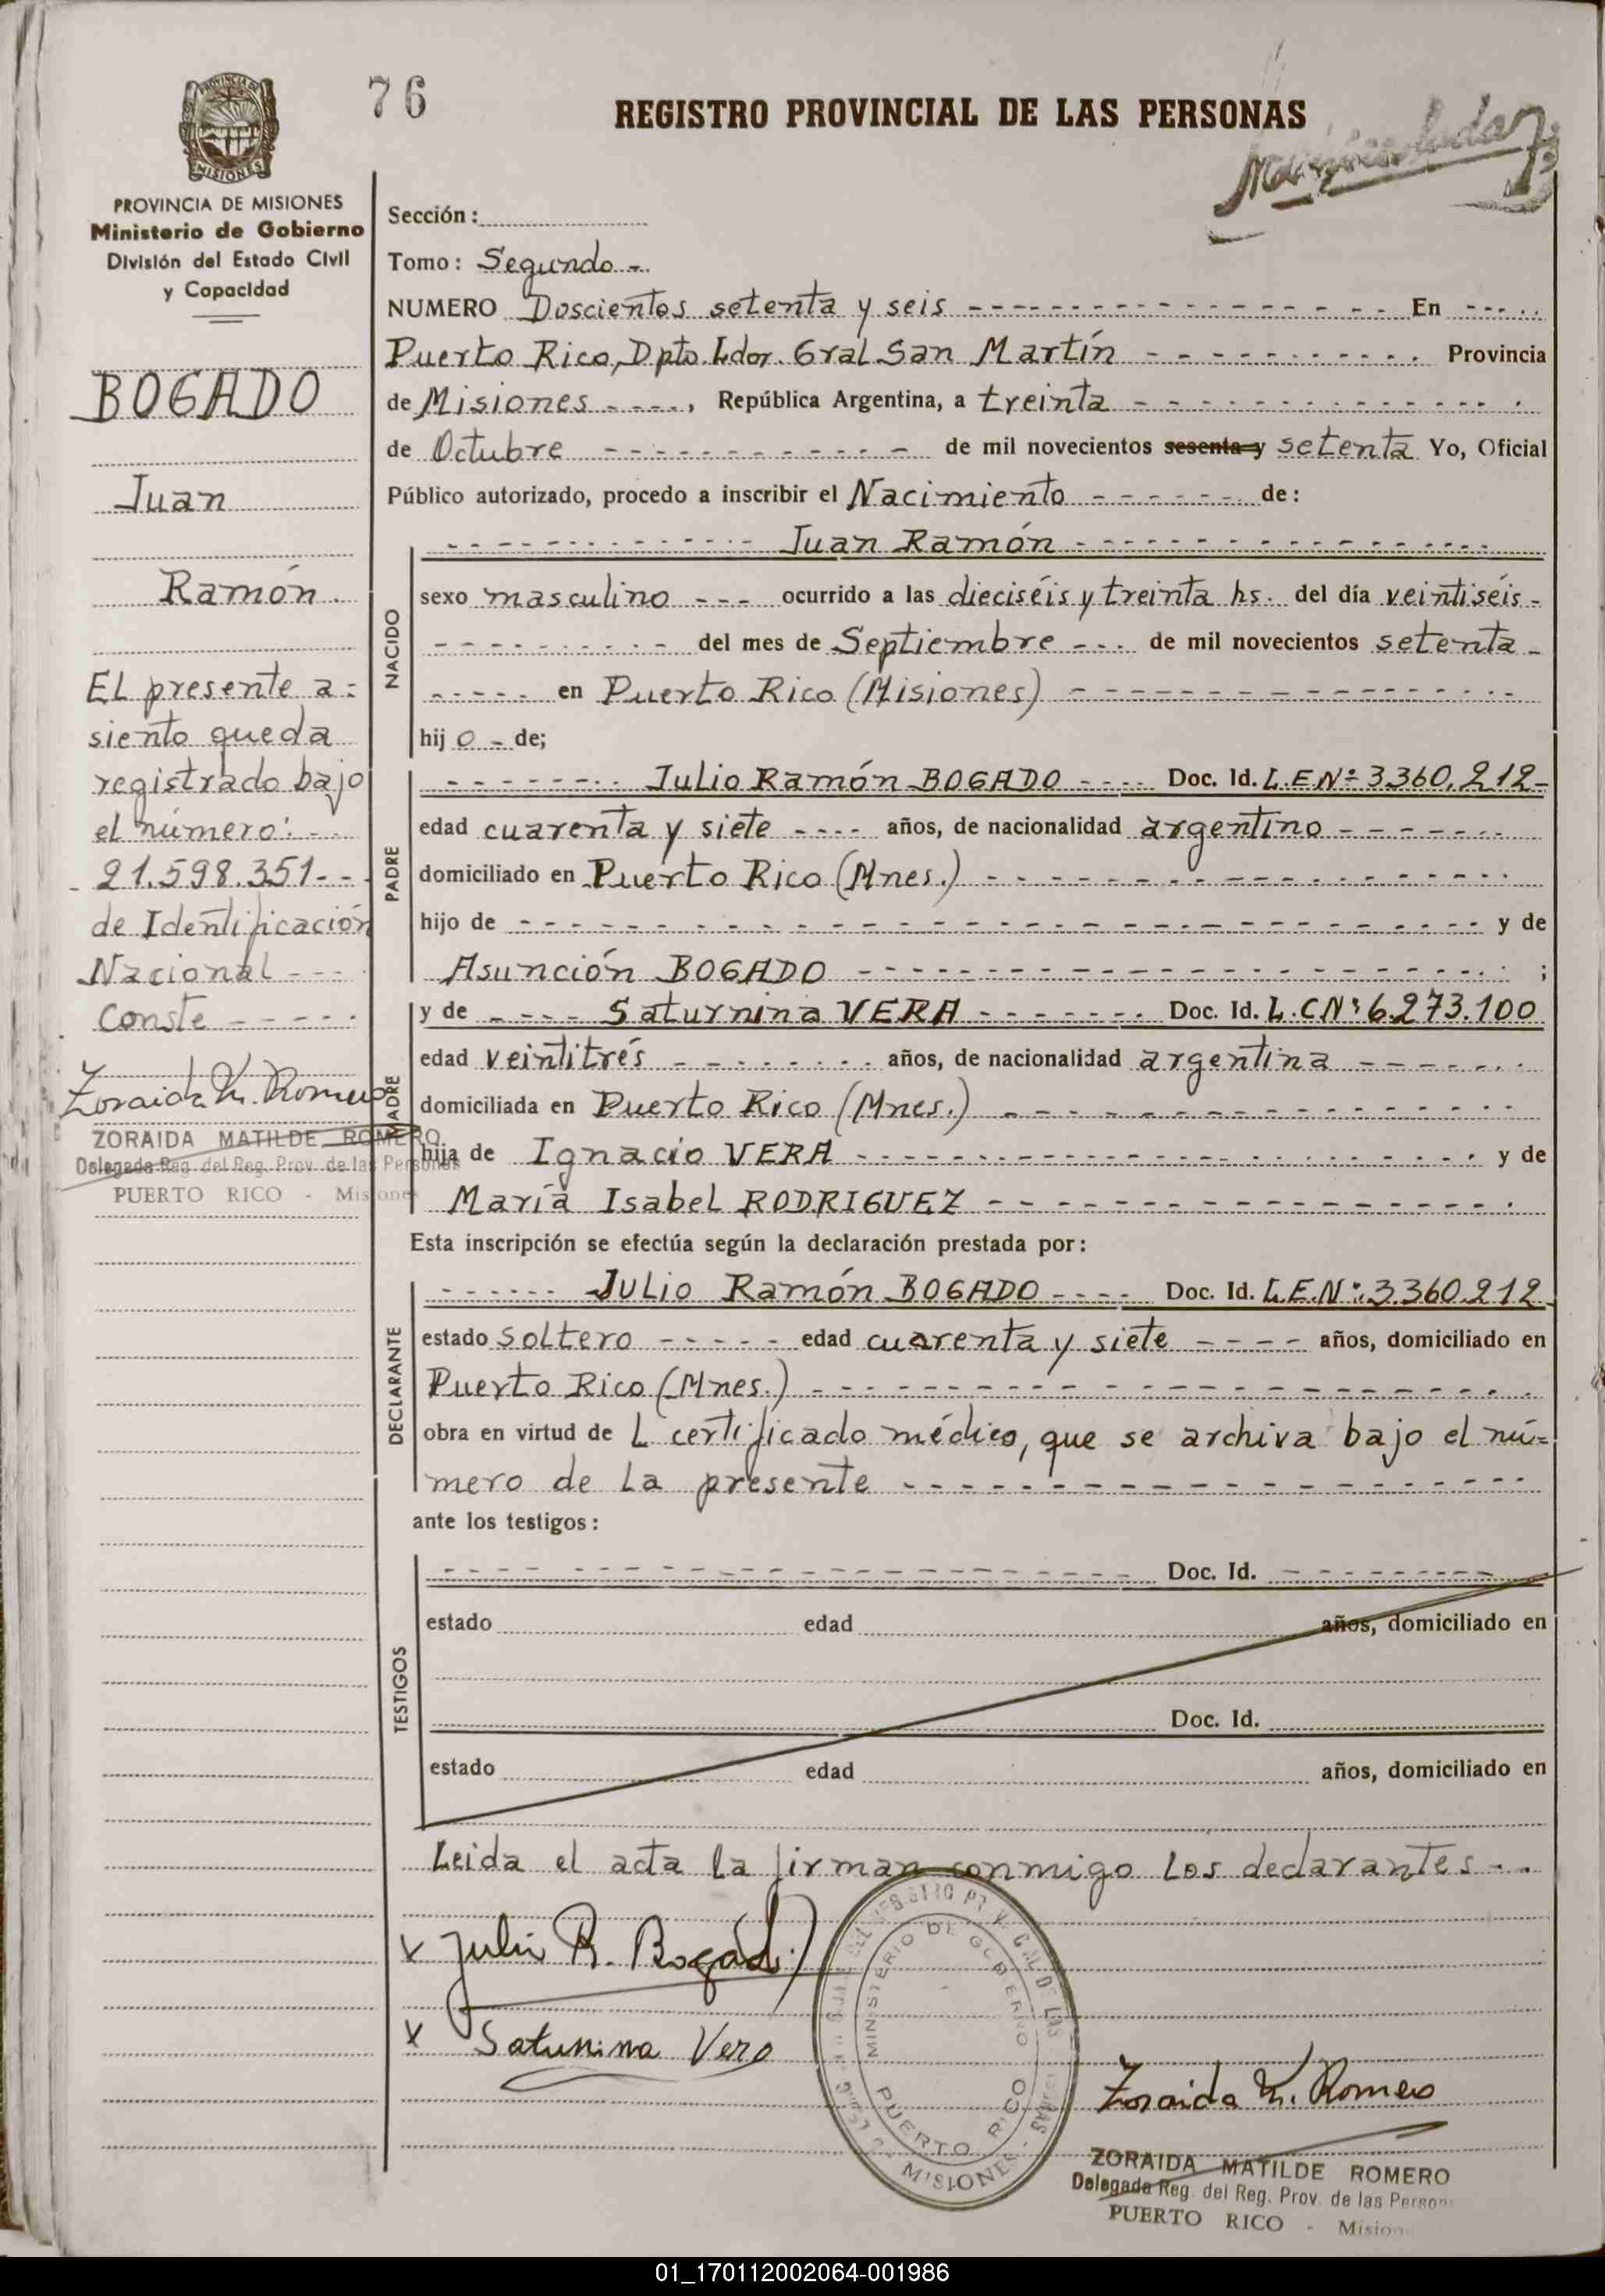 76
REGISTRO PROVINCIAL DE LAS PERSONAS
PROVINCIA DE MISIONES
Ministerio de Gobierno
División del Estado Civil
y Capacidad
BOGADO
Juan
Ramón.
EL presente a=
siento queda
registrado bajo
el número: - -
- 21.598.351 - -
de Identificación
Nacional - - -
Conste - - - - -
Zoraida M. Romero
ZORAIDA MATILDE ROMERO
Delegada Reg. del Reg. Prov. de las Personas
PUERTO RICO - Misiones
Sección:
Tomo: Segundo -
NUMERO Doscientos setenta y seis - - - En - - -
Puerto Rico, Dpto Ldor. Gral San Martín - - - Provincia
de Misiones - - - -, República Argentina, a treinta - - -
de Octubre - - - de mil novecientos sesenta y setenta Yo, Oficial
Público autorizado, procedo a inscribir el Nacimiento - - - de:
NACIDO
- - - Juan Ramón - - -
sexo masculino - - - ocurrido a las dieciséis y treinta hs. del día veintiséis -
- - - del mes de Septiembre - - - de mil novecientos setenta -
- - - en Puerto Rico (Misiones) - - -
hij o - de;
PADRE
- - - Julio Ramón BOGADO - - - Doc. Id. L.E.Nº 3.360.212 -
edad cuarenta y siete - - - - años, de nacionalidad argentino - - -
domiciliado en Puerto Rico (Mnes.) - - -
hijo de - - - y de
Asunción BOGADO - - - ;
MADRE
y de - - - - Saturnina VERA - - - Doc. Id. L.C.Nº 6.273.100
edad veintitrés - - - años, de nacionalidad argentina - - -
domiciliada en Puerto Rico (Mnes.) - - -
hija de Ignacio VERA - - - y de
María Isabel RODRIGUEZ - - -
Esta inscripción se efectúa según la declaración prestada por:
DECLARANTE
- - - Julio Ramón BOGADO - - - - Doc. Id. L.E.Nº: 3.360.212
estado soltero - - - - - edad cuarenta y siete - - - - años, domiciliado en
Puerto Rico (Mnes.) - - -
obra en virtud de L certificado médico, que se archiva bajo el nú=
mero de la presente - - -
ante los testigos:
TESTIGOS
- - - Doc. Id. - - -
estado edad años, domiciliado en
Doc. Id.
estado edad años, domiciliado en
Leida el acta la firman conmigo los declarantes - -
x Julio R. Bogado
x Saturnina Vera
MINISTERIO DE GOBIERNO
PUERTO RICO
MISIONES
Zoraida M. Romero
ZORAIDA MATILDE ROMERO
Delegada Reg. del Reg. Prov. de las Person
PUERTO RICO - Mision
01_170112002064-001986